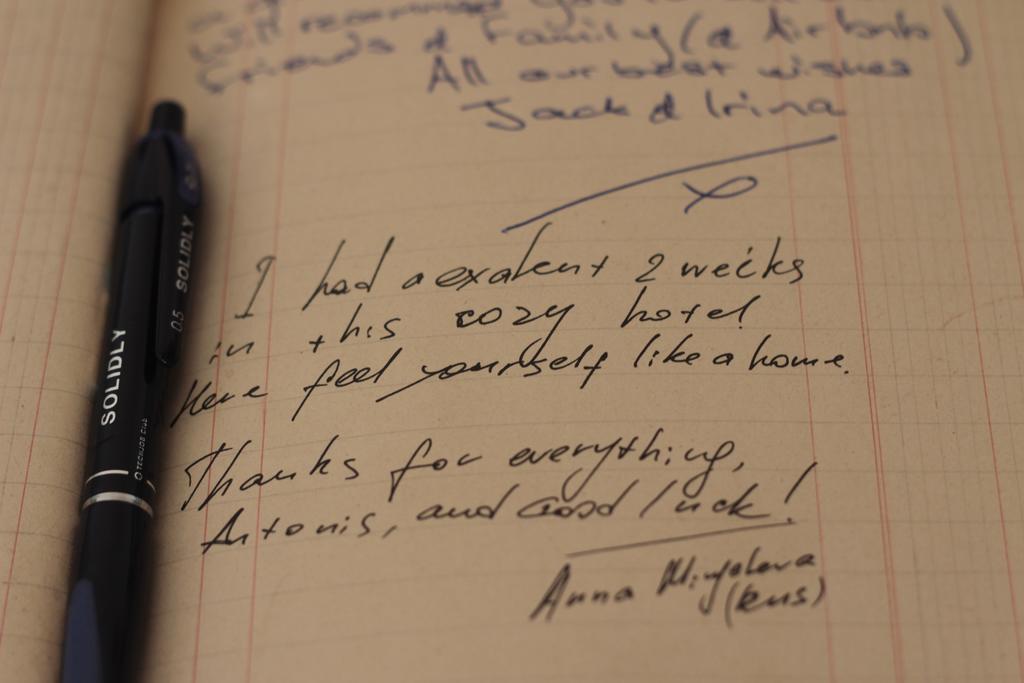 will recommend you to
friends & Family (& Airbnb)
All our best wishes
Jack & Irina
I had a exalent 2 weeks
in this cozy hotel
Here feel yourself like a home.
Thanks for everything,
Antonis, and Good luck!
Anna
(RUS)
SOLIDLY
0.5 SOLIDLY
0.7